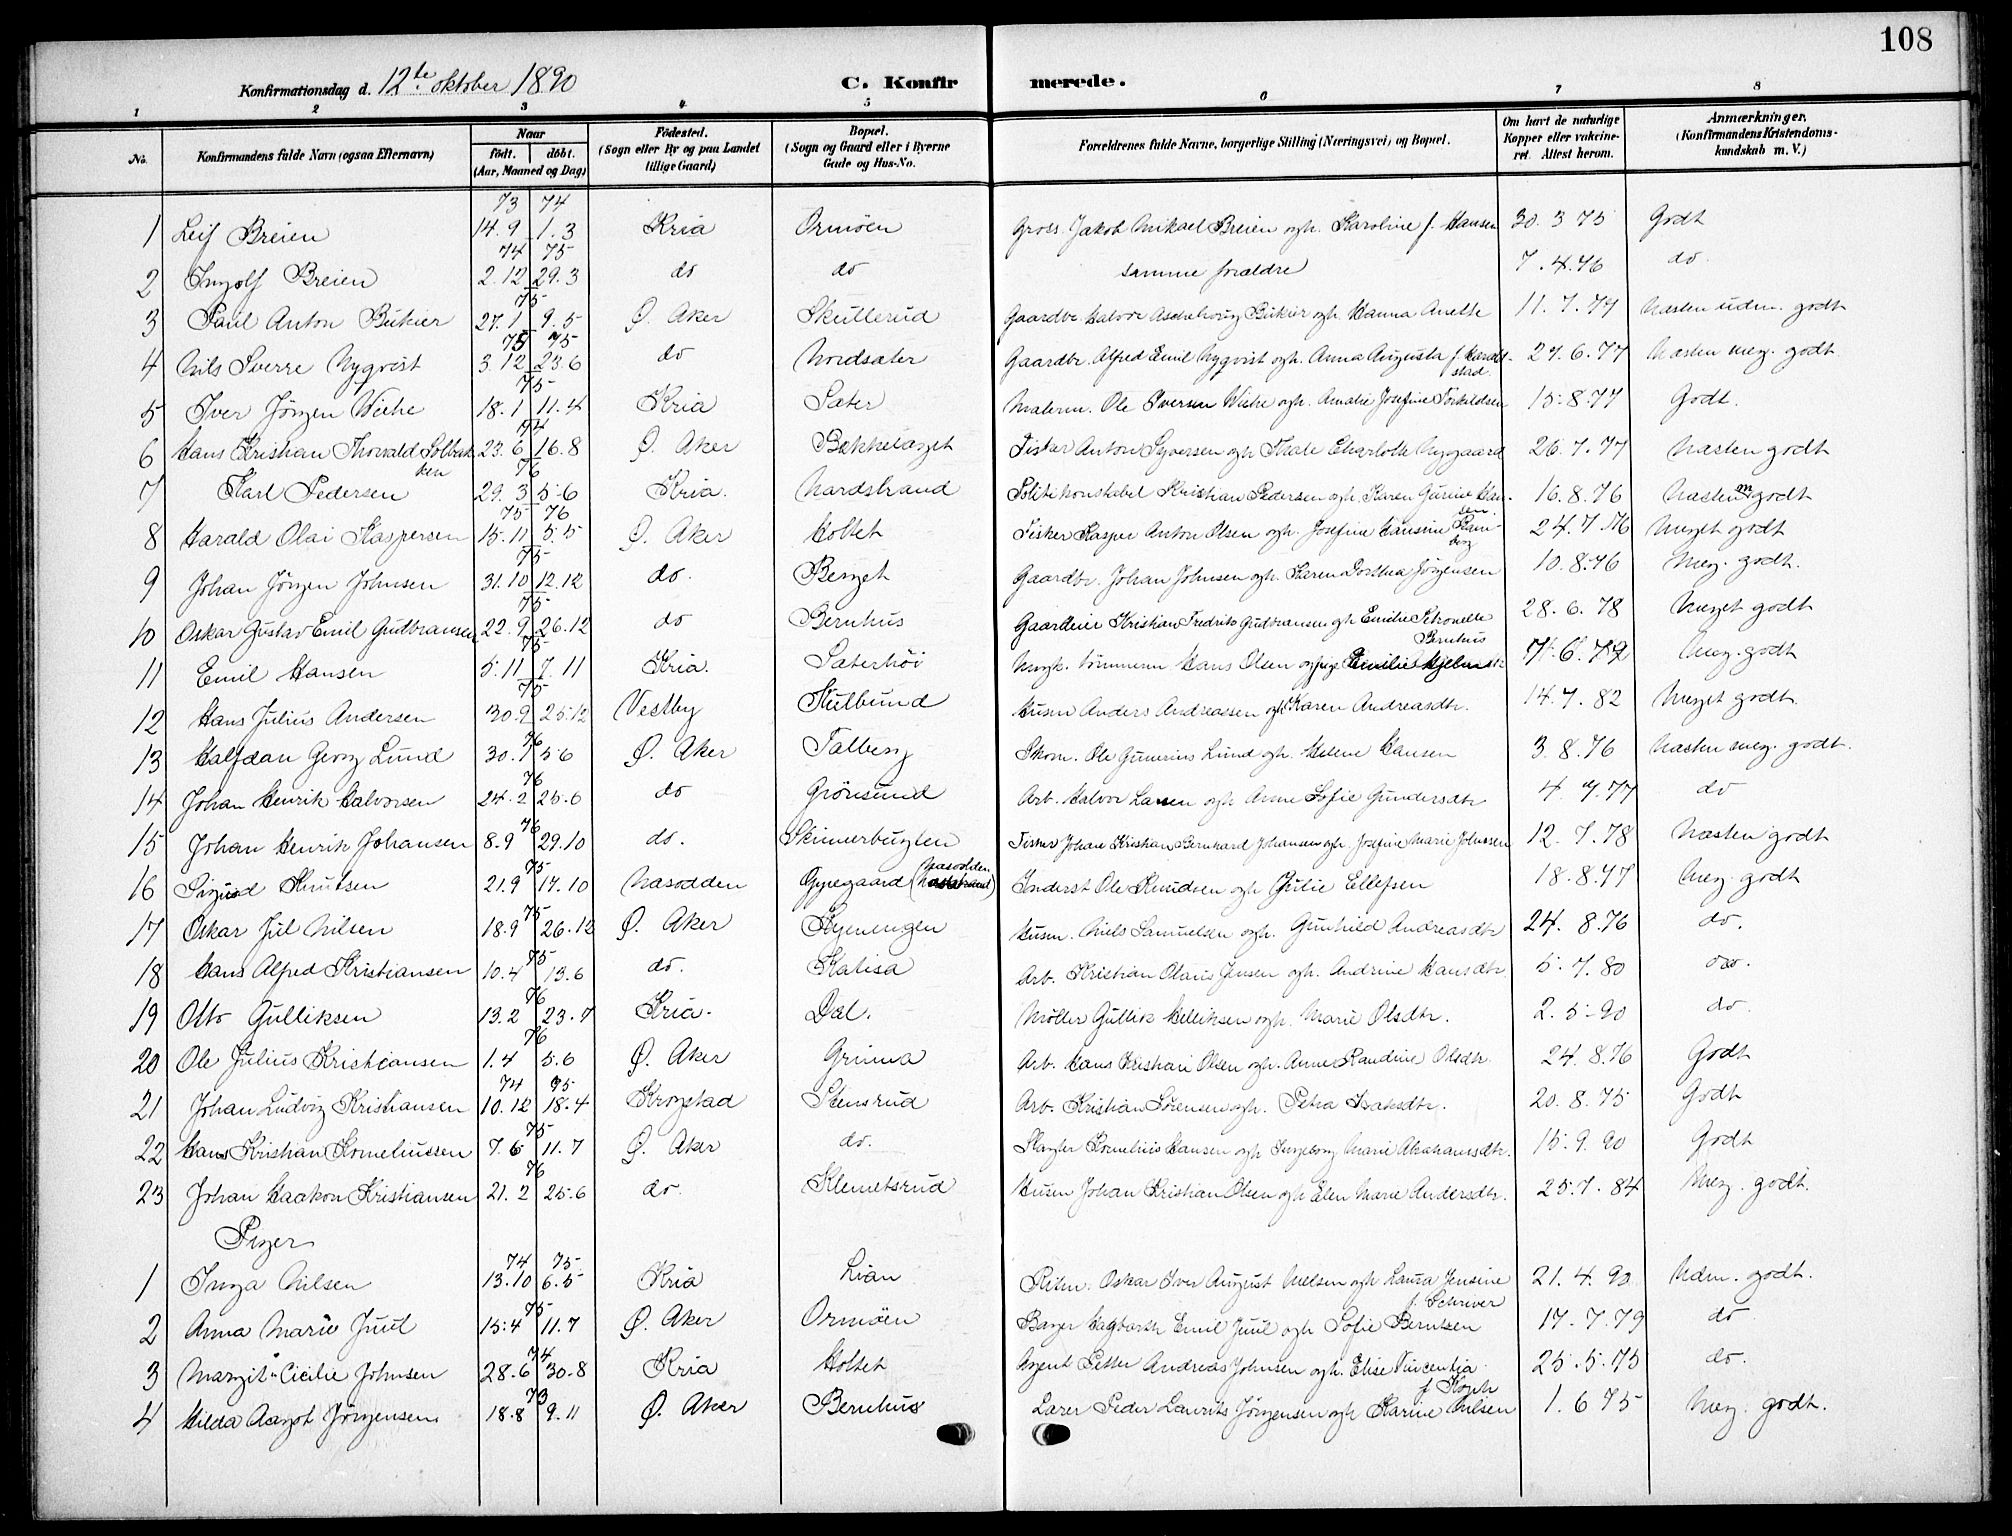 108
Konfirmationsdag d. 12te oktober 1890 C. Konfirmerede.
1 2 3 4 5 6 7 8
No. Konfirmandens fulde Navn (ogsaa Efternavn) Naar födt. döbt. (Aar, Maaned og Dag) Födested. (Sogn eller By og paa Landet tillige Gaard) Bopæl. (Sogn og Gaard eller i Byerne Gade og Hus-No. Forældrenes fulde Navne, borgerlige Stilling (Næringsvei) og Bopæl. Om havt de naturlige Kopper eller vakcineret. Attest herom. Anmærkninger. (Konfirmandens Kristendomskundskab m. V.)
73 74
1 Leif Breien 14.9 1.3 Kria Ormöen Gross. Jakob Mikael Breien ogh. Karoline f. Hansen 30.3 75 Godt
74 75
2 Ingolf Breien 2.12 29.3 do do samme forældre 7.4.76 do
75
3 Paul Anton Bükier 27.1 9.5 Ø. Aker Skullerud Gaardbr. Halvor Aschehoug Bükier ogh. Hanna Anette 11.7.77 Næsten udm. godt
75 75
4 Nils Sverre Nyqvist 3.12 23.6 do Nordsæter Gaardbr. Alfred Emil Nyqvist ogh. Anna Augusta f. Haraldstad 27.6.77 Næsten meg. godt
75
5 Iver Jörgen Wiehe 18.1 11.4 Kria Sæter Malerm. Ole Iversen Wiehe ogh. Amalie Josefine Torkildsen 15.8.77 Godt.
74
6 Hans Kristian Thorvald Solbakken 23.6 16.8 Ø. Aker Bekkelaget Fisker Anton Syversen ogh. Thale Charlotte Nygaard 26.7.77 Næsten godt
76
7 Karl Pedersen 29.3 5.6 Kria. Nordstrand Politikonstabel Kristian Pedersen ogh. Karen Gurine Hansen. 16.8.76 Næsten m godt
75 76
8 Harald Olai Kaspersen 15.11 5.5 Ø. Aker Holtet Fisker Kasper Anton Olsen ogh. Josefine Hansine 24.7.76 Meget godt
75
9 Johan Jörgen Johnsen 31.10 12.12 do. Berget Gaardbr. Johan Johnsen ogh. Karen Dorthea Jörgensen 10.8.76 Meg. godt.
75
10 Oskar Gustav Emil Gudbransen 22.9 26.12 do Bernhus Gaardeier Kristian Fredrik Gudbransen ogh Emilie Petronelle Bernhus 28.6.78 Meget godt
75
11 Emil Hansen 5.11 7.11 Kria. Sæterhöi Ungk. tömmerm Hans Olsen og pige Emilie Hjelmstr 6.79 Meg. godt
75
12 Hans Julius Andersen 30.9 25.12 Vestby Stulbund Husm Anders Andreassen og Karen Andreasdtr. 14.7.82 Meget godt
76
13 Halfdan Georg Lund 30.1 5.6 Ø. Aker Talberg Skom. Ole Gunerius Lund ogh. Helene Hansen 3.8.76 Næsten meg. godt.
76
14 Johan Henrik Halvorsen 24.2 25.6 do Grönsund Arb. Halvor Larsen ogh Anne Sofie Gundersdtr 4.7.77 do
76
15 Johan Henrik Johansen 8.9 29.10 do. Skinnerbugten Fisker Johan Kristian Bernhard Johansen ogh. Josefine Marie Johnssen 12.7.78 Næsten godt
75
16 Sigurd Knutsen 21.9 17.10 Næsodden Gjegaard (Næsodden) Inderst Ole Knudsen ogh Julie Ellefsen 18.8.77 Meg. godt
75
17 Oskar Jul Nilsen 18.9 26.12 Ø. Aker Stymengen Husm. Niels Samuelsen ogh. Gunhild Andreasdtr 24.8.76 do.
75
18 Hans Alfred Kristiansen 10.4 13.6 do. Katisa Arb. Kristian Olaus Jensen ogh. Andrine Hansdtr 5.7.80 do.
76
19 Otto Gulliksen 13.2 23.7 Kria. Dal. Möller Gullik Helliksen ogh. Marie Olsdtr. 2.5.90 do
76
20 Ole Julius Kristiansen 1.4 5.6 Ø. Aker Grinna Arb. Hans Kristian Olsen ogh. Anne Randine Olsdtr. 24.8.76 Godt
74 75
21 Johan Ludvig Kristiansen 10.12 18.4 Krogstad Stensrud Arb. Kristian Sörensen ogh. Petra Isaksdtr. 20.8.75 Godt
75
22 Hans Kristian Korneliussen 7.6 11.7 Ø. Aker do. Slagter Kornelius Hansen ogh Ingeborg Marie Abrahamsdtr. 15.9.90 Godt
76
23 Johan Haakon Kristiansen 21.2 25.6 do. Klemetsrud Husm Johan Kristian Olsen ogh Elen Marie Andersdtr. 25.7.84 Meg. godt.
Piger
74 75
1 Inga Nilsen 13.10 6.5 Kria Lian Oskar Iver August Nielsen ogh Laura Jensine f. Schriver 21.4.90 Udm. godt.
75
2 Anna Marie Juul 15.4 11.7 Ø. Aker Ormöen Bager Hagbarth Emil Juul ogh Sofie Berntsen 17.7.79 do
74
3 Margit Cicilie Johnsen 28.6 30.8 Kria Holtet Agent Petter Andreas Johnsen ogh. Elise Vincentia f. Koph 25.5.75 do.
73
4 Hilda Aagot Jörgensen 18.8 9.11 Ø. Aker Bernhus Lærer Peder Laurits Jörgensen ogh Karine Nilsen 1.6 75 Meg. godt.